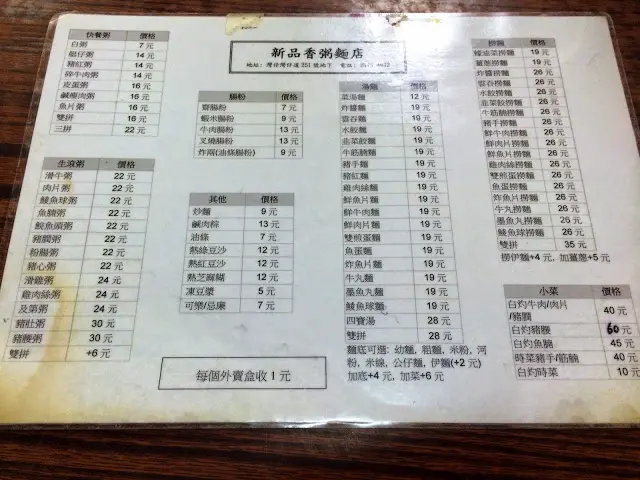 新品香粥麵店
快餐粥 價格
白粥 7 元
艇仔粥 14 元
豬紅粥 14 元
碎牛肉粥 14 元
皮蛋粥 16 元
鹹瘦肉粥 16 元
魚片粥 16 元
雙拼 16 元
三拼 22 元
生滾粥 價格
滑牛粥 22 元
肉片粥 22 元
鯪魚球粥 22 元
魚腩粥 22 元
鯇魚頭粥 22 元
豬膶粥 22 元
粉腸粥 22 元
豬心粥 22 元
滑雞粥 24 元
雞肉絲粥 24 元
及第粥 24 元
豬肚粥 30 元
豬腰粥 30 元
雙拼 +6 元
腸粉 價格
齋腸粉 7 元
蝦米腸粉 9 元
牛肉腸粉 13 元
叉燒腸粉 13 元
炸兩(油條腸粉) 9 元
其他 價格
炒麵 9 元
鹹肉粽 13 元
油條 7 元
熱綠豆沙 12 元
熱紅豆沙 12 元
熱芝麻糊 12 元
凍豆漿 5 元
可樂/忌廉 7 元
每個外賣盒收 1 元
湯麵 價格
菜湯麵 12 元
炸醬麵 19 元
雲吞麵 19 元
水餃麵 19 元
韭菜餃麵 19 元
牛筋腩麵 19 元
豬手麵 19 元
豬肉麵 19 元
雞肉絲麵 19 元
鮮魚片麵 19 元
鮮牛肉麵 19 元
鮮肉片麵 19 元
雙煎蛋麵 19 元
魚蛋麵 19 元
炸魚片麵 19 元
牛丸麵 19 元
墨魚丸麵 19 元
鯪魚球麵 19 元
四寶湯 28 元
雙拼 28 元
麵底可選: 幼麵, 粗麵, 米粉, 河
粉, 米線, 公仔麵, 伊麵(+2 元)
加底+4 元, 加菜+6 元
撈麵 價格
蠔油菜撈麵 19 元
薑葱撈麵 19 元
炸醬撈麵 26 元
雲吞撈麵 26 元
水餃撈麵 26 元
韭菜餃撈麵 26 元
牛筋腩撈麵 26 元
豬手撈麵 26 元
鮮牛肉撈麵 26 元
鮮肉片撈麵 26 元
鮮魚片撈麵 26 元
雞肉絲撈麵 26 元
雙煎蛋撈麵 26 元
魚蛋撈麵 26 元
炸魚片撈麵 26 元
牛丸撈麵 26 元
墨魚丸撈麵 26 元
鯪魚球撈麵 26 元
雙拼 35 元
撈伊麵+4 元, 加薑葱+5 元
小菜 價格
白灼牛肉/肉片
/豬膶 40 元
白灼豬腰 60 元
白灼魚腩 45 元
時菜豬手/筋腩 40 元
白灼時菜 10 元